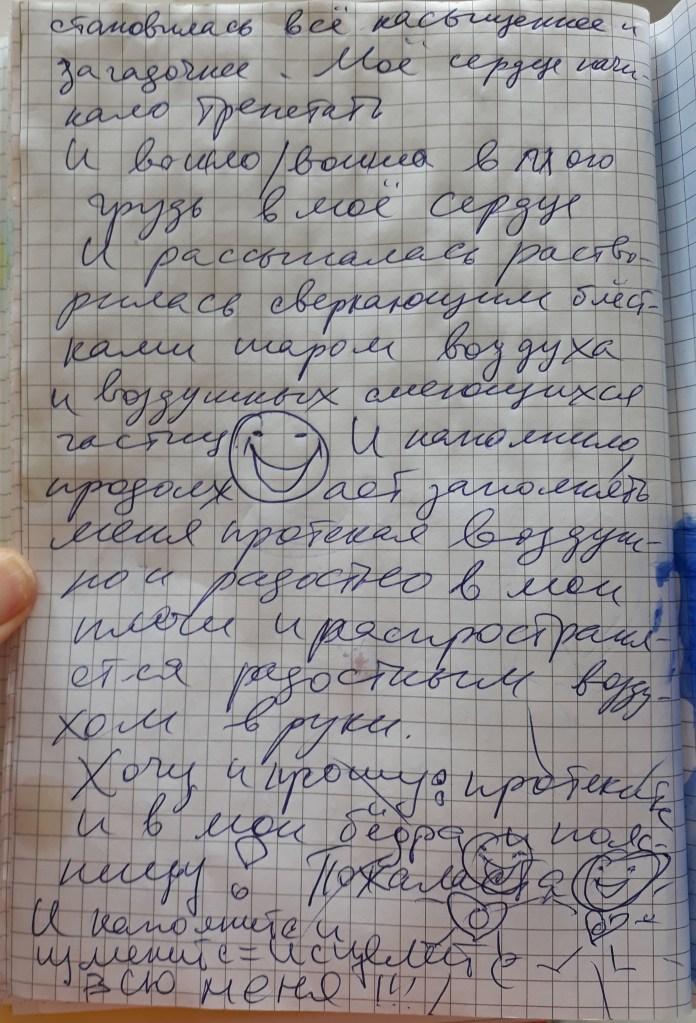 становилась всё насыщеннее и
загадочнее. Моё сердце начи-
нало трепетать
И вошло/вошла в мою
грудь в моё сердце
И рассыпалась раство-
рилась сверкающим блёст-
ками шаром воздуха
и воздушных смеющихся
частиц И наполнило,
продолжает заполнять
меня протекая воздуш-
но и радостно в мои
плечи и распространя-
ется радостным возду-
хом в руки.
Хочу и прошу: протекать
и в мои бёдра и пояс-
ницу Пожалуйста
И наполнить и
изменить = Исцелить
всю меня !!!